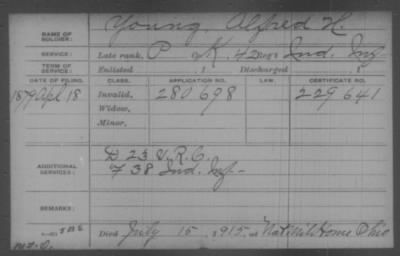 NAME OF SOLDIER: Young, Alfred H.
SERVICE: Late rank, P of K, 42 Reg't Ind. Inf
TERM OF SERVICE: Enlisted , 1 Discharged , 1
DATE OF FILING. CLASS. APPLICATION NO. LAW. CERTIFICATE NO.
1879 Apl 18 Invalid, 280698 229641
Widow,
Minor,
ADDITIONAL SERVICES: D 23 V.R.C.
F 38 Ind. Inf
REMARKS:
Died July 15, 1915, at Nat Mil Home Ohio